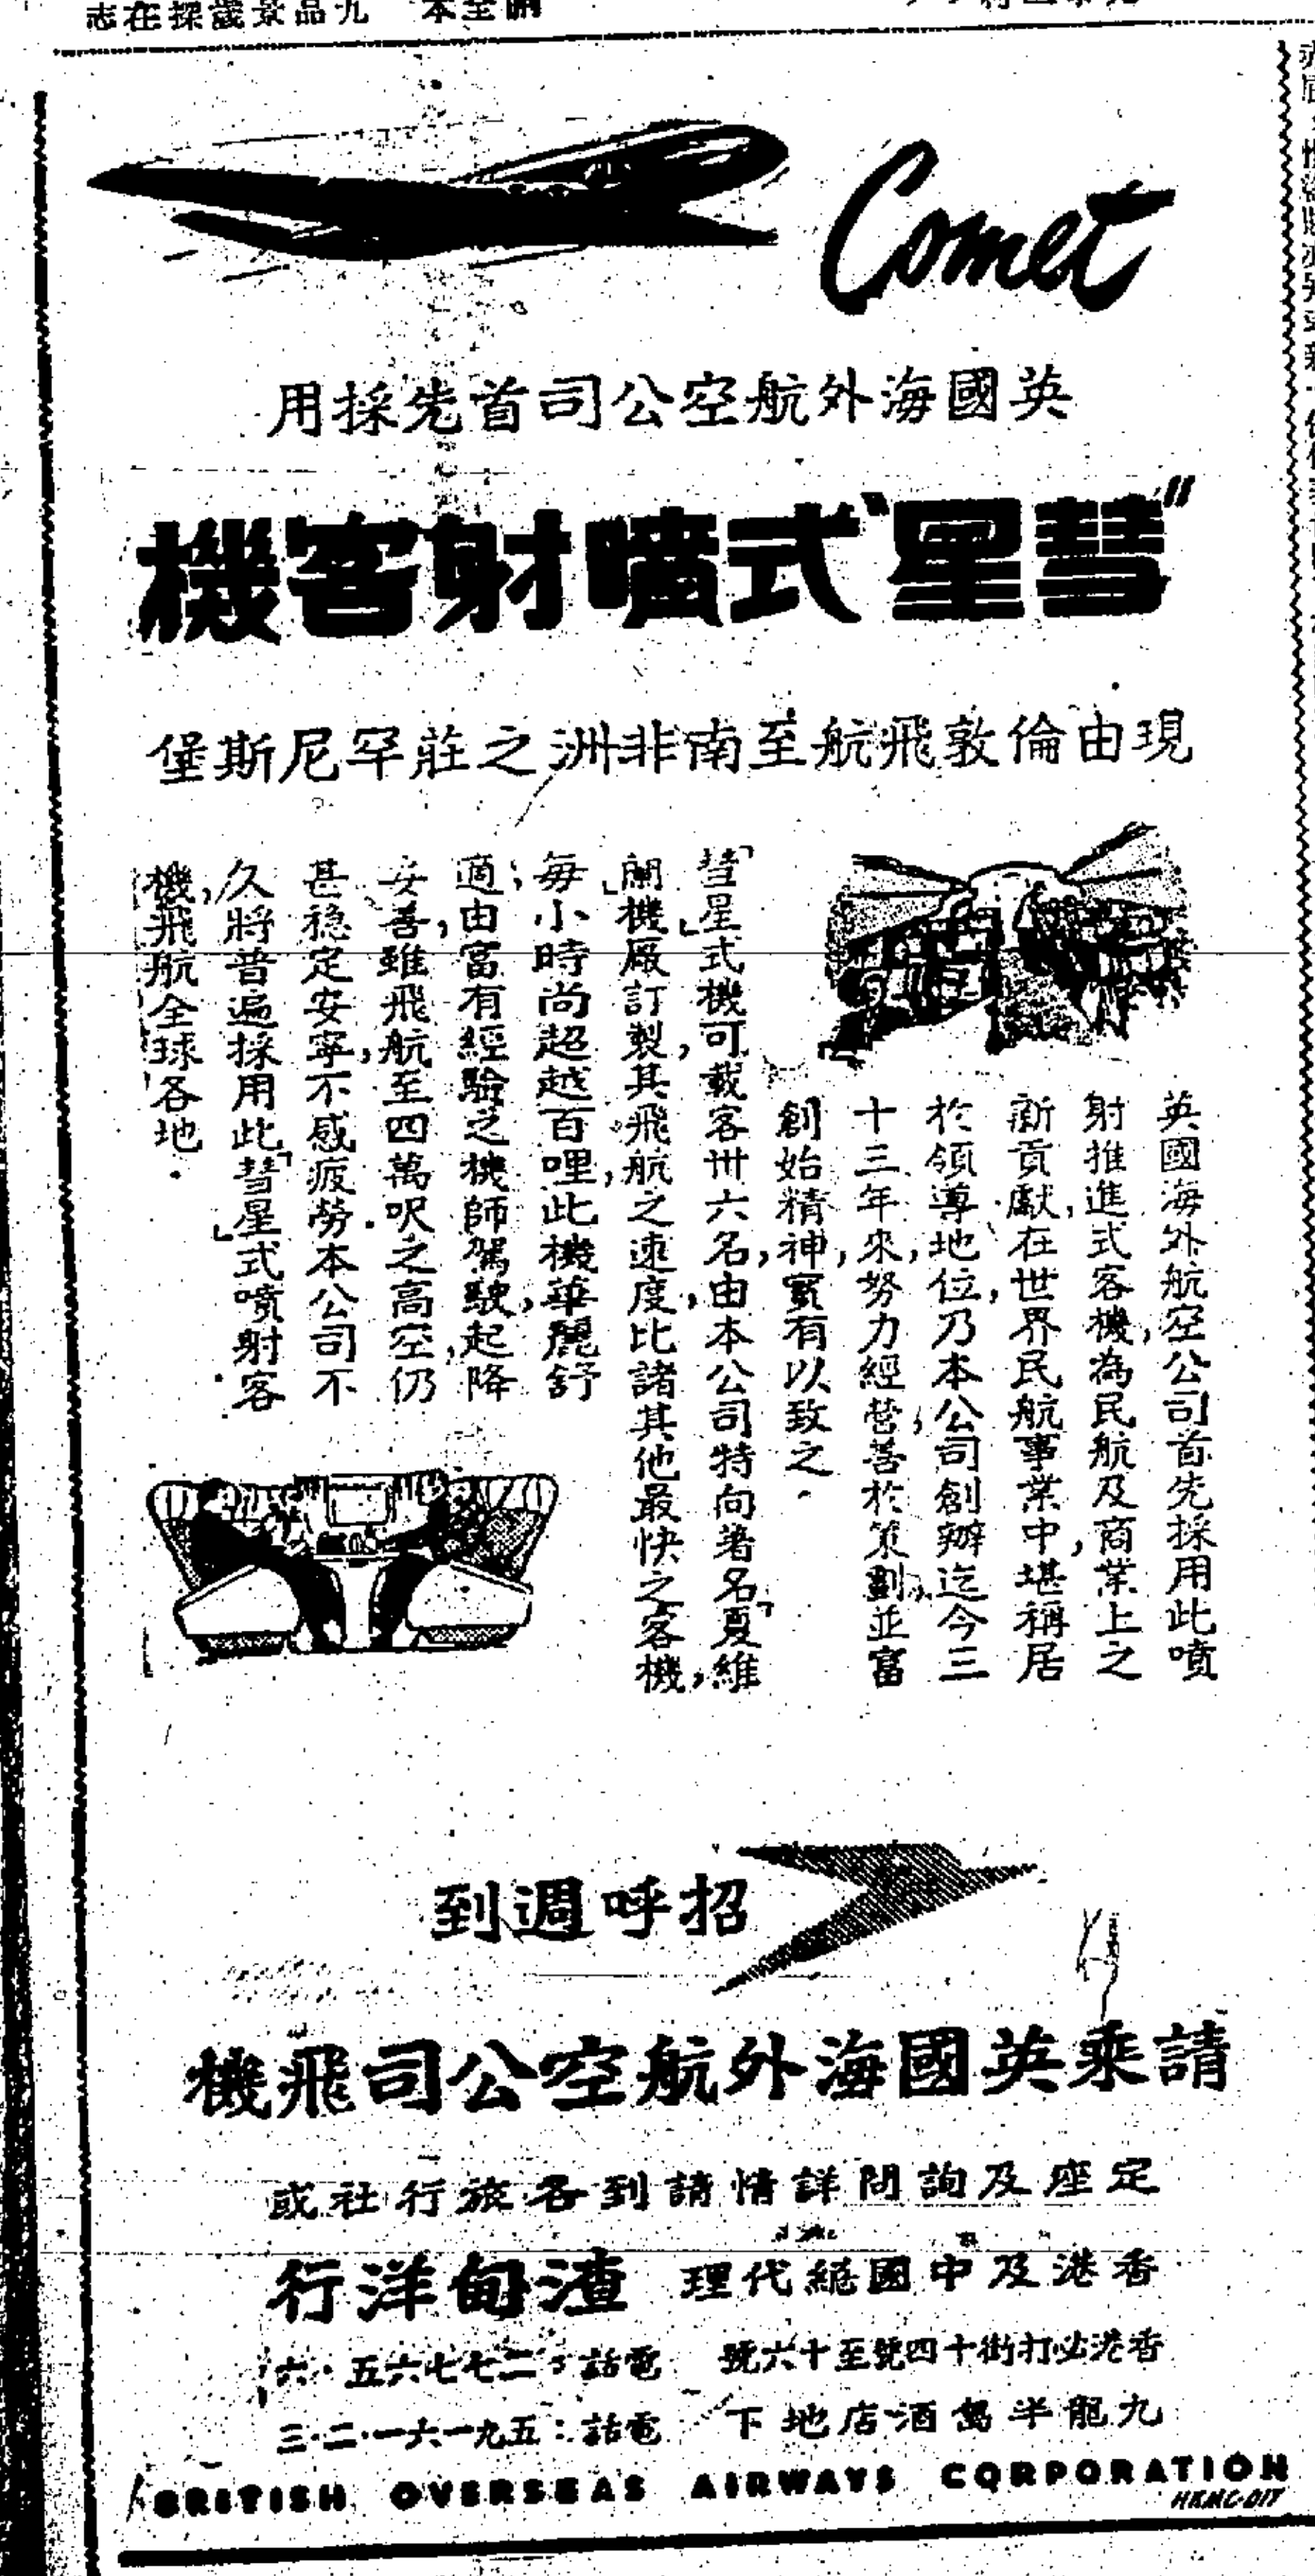 Comet
英國海外航空公司首先採用
"彗星"式噴射客機
現由倫敦飛航至南非洲之莊罕尼斯堡
英國海外航空公司首先採用此噴
射推進式客機,為民航及商業上之
新貢獻,在世界民航事業中,堪稱居
於領導地位,乃本公司創辦迄今三
十三年來,努力經營,善於策劃,並富
創始精神,實有以致之.
「彗星」式機可載客卅六名,由本公司特向著名「夏維
蘭」機廠訂製,其飛航之速度,比諸其他最快之客機,
每小時尚超越百哩,此機華麗舒
適;由富有經驗之機師駕駛,起降
安善,雖飛航至四萬呎之高空,仍
甚穩定安寧,不感疲勞.本公司不
久將普遍採用此「彗星」式噴射客
機,飛航全球各地.
招呼週到
請乘英國海外航空公司飛機
定座及詢問詳情請到各旅行社或
香港及中國總代理 渣甸洋行
香港必打街十四號至十六號 電話:二七七六五·六
九龍半島酒店地下 電話:五九一六一·二·三
BRITISH OVERSEAS AIRWAYS CORPORATION
HKMC-017